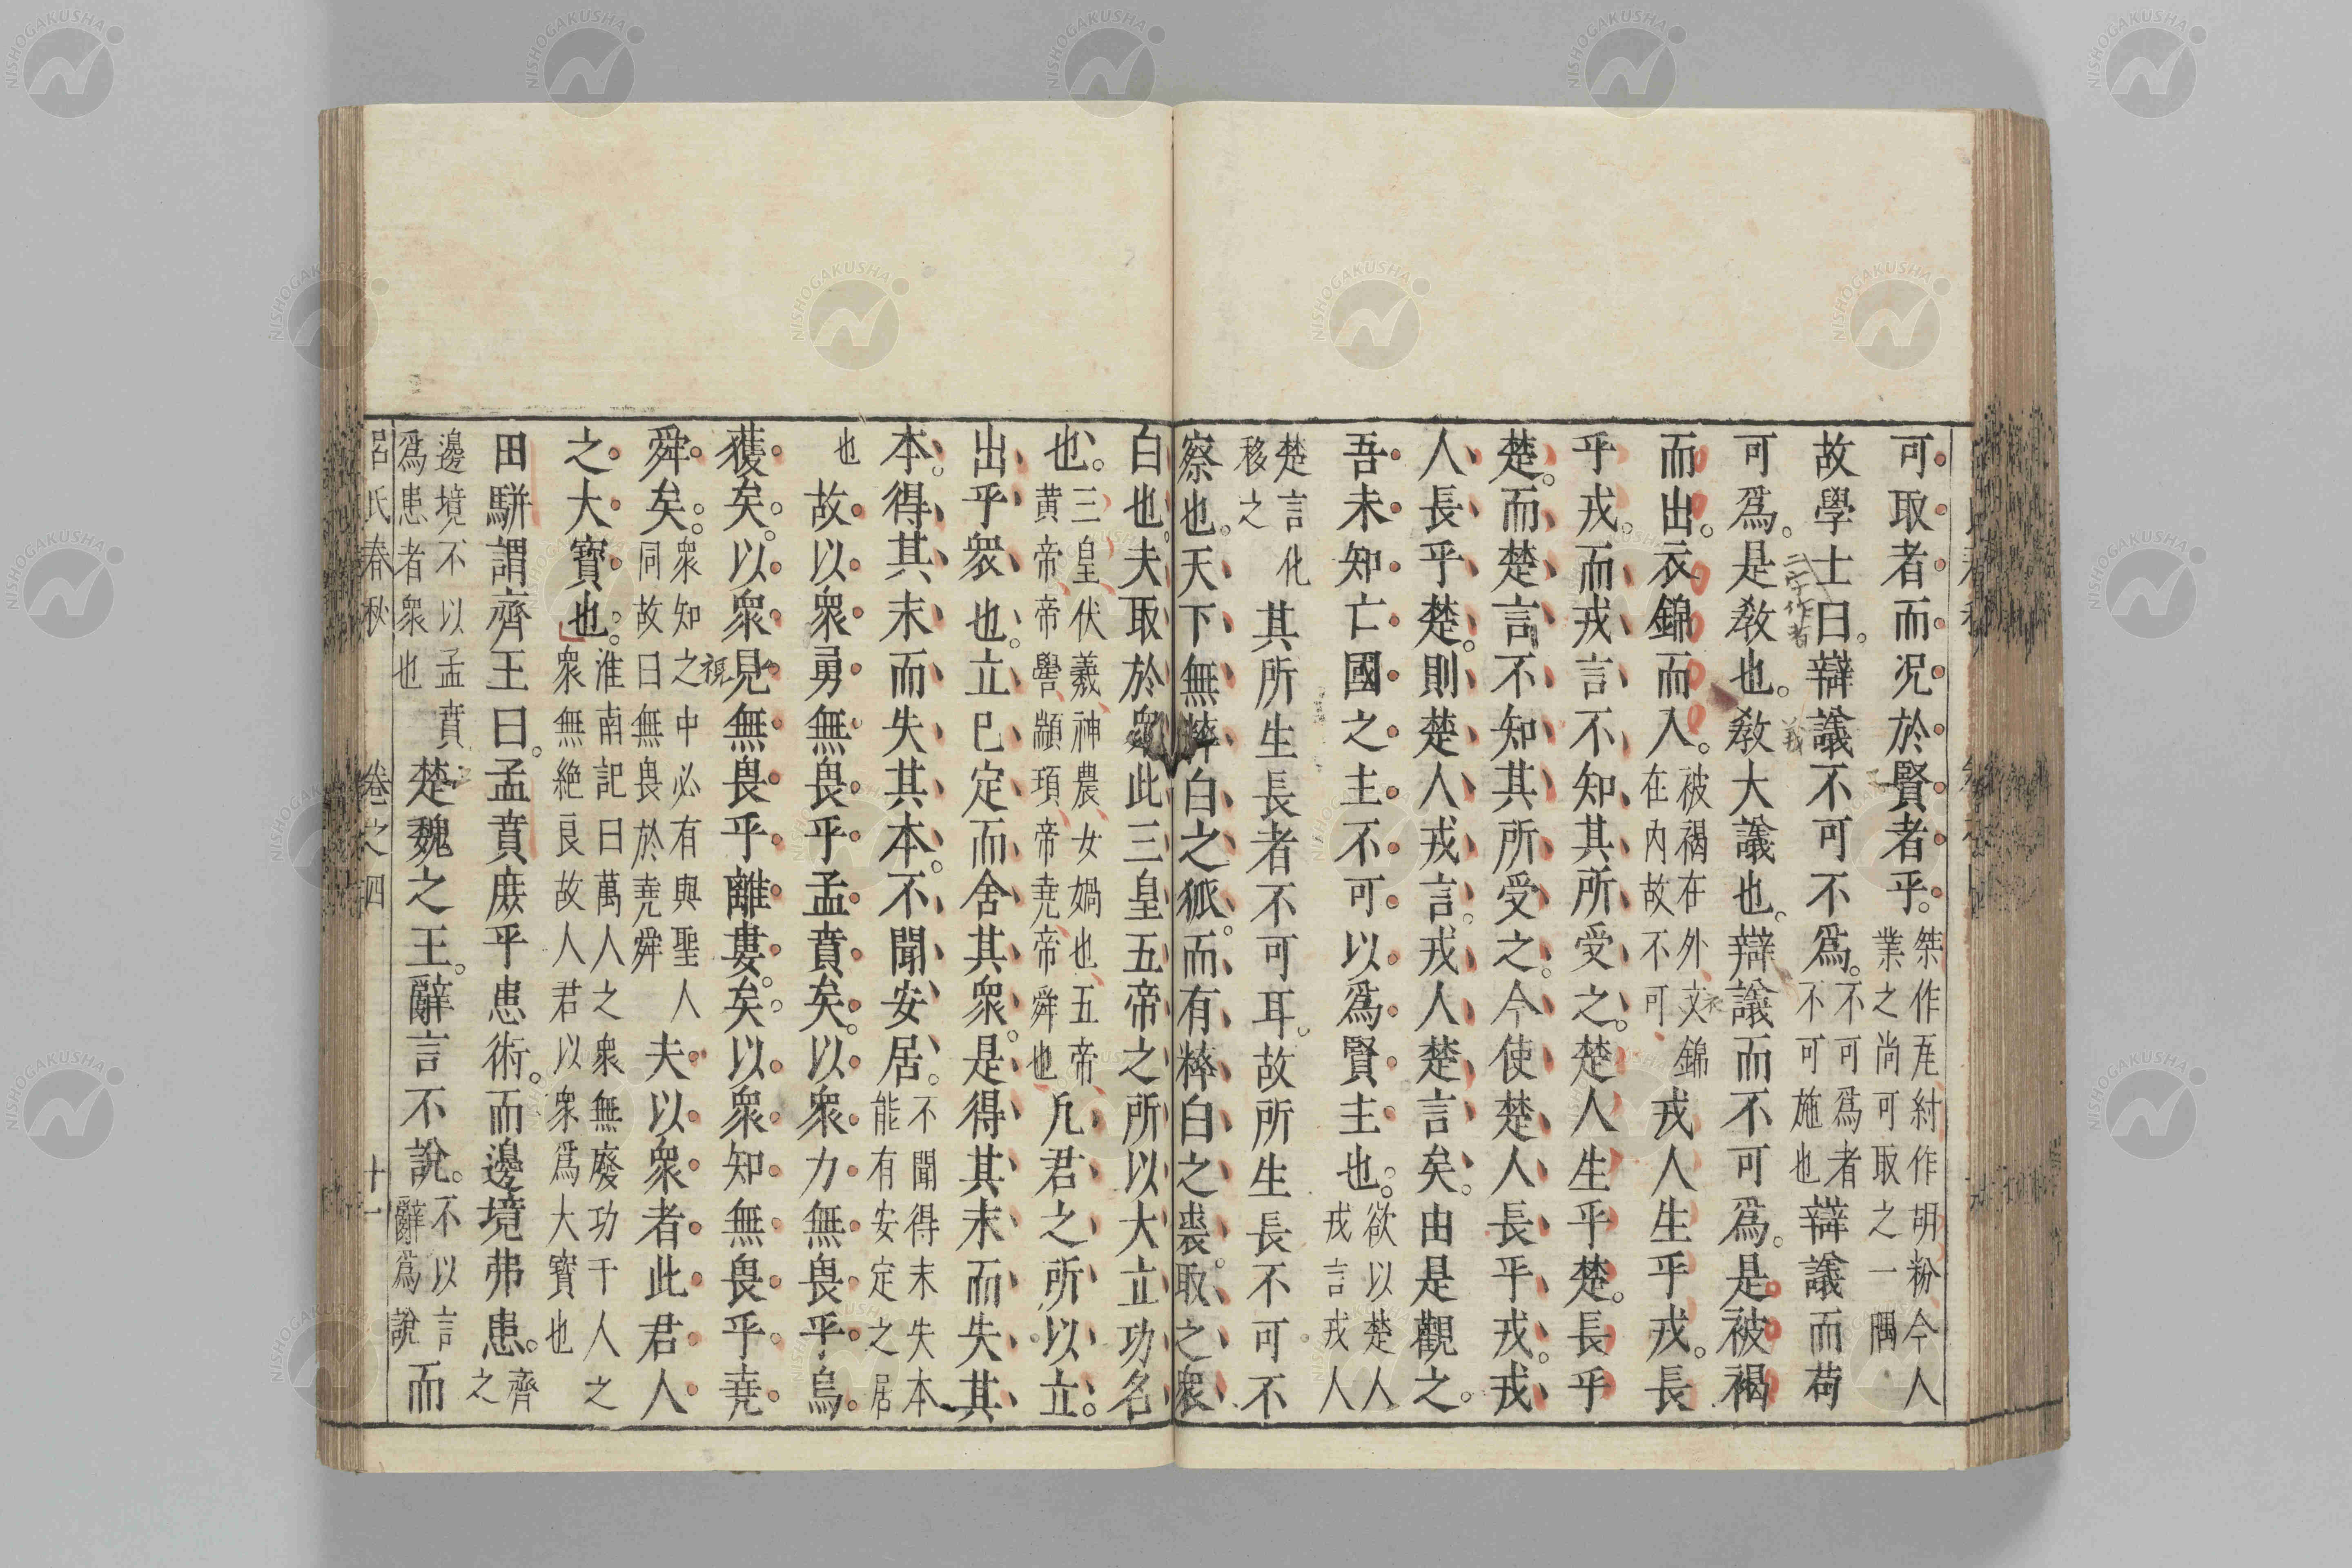 可取者而况於賢者乎。桀作瓦紂作胡粉今人業之尚可取之一隅
故學士曰。辯議不可不爲。不可爲者不可施也辯議而苟
可爲。是敎也。敎大議也。辯議而不可爲。是被褐
而出。衣錦而入。被褐在外文錦在内故不可戎人生乎戎。長
乎戎。而戎言不知其所受之。楚人生乎楚。長乎
楚。而楚言不知其所受之。今使楚人長乎戎。戎
人長乎楚。則楚人戎言。戎人楚言矣。由是觀之。
吾未知亡國之主不可以爲賢主也。欲以楚人戎言戎人
楚言化移之其所生長者不可耳。故所生長不可不
察也。天下無粹白之狐。而有粹白之裘。取之衆
白也。夫取於衆此三皇五帝之所以大立功名
也。三皇伏羲神農女媧也五帝黄帝帝嚳顓頊帝堯帝舜也凡君之所以立。
出乎衆也。立已定而舍其衆。是得其末而失其
本。得其末而失其本。不聞安居。不聞得末失本能有安定之居
也故以衆勇無畏乎孟賁矣。以衆力無畏乎烏
獲矣。以衆見無畏乎離婁矣。以衆知無畏乎堯
舜矣。衆知之中必有與聖人同故曰無畏於堯舜夫以衆者此君人
之大寳也。淮南記曰萬人之衆無廢功千人之衆無絶良故人君以衆爲大寳也
田駢謂齊王曰。孟賁庶乎患術。而邊境弗患。齊之
邊境不以孟賁爲患者衆也楚魏之王。辭言不說。不以言辭爲說而
呂氏春秋 卷之四 十一
NISHOGAKUSHA